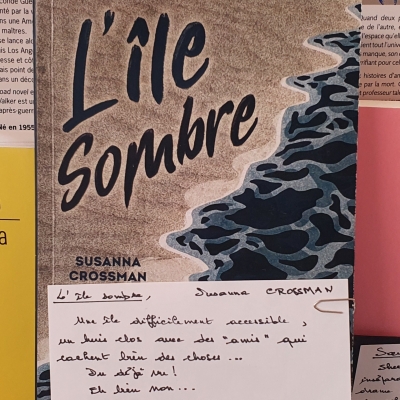 L'île
Sombre
SUSANNA
CROSSMAN
L'île sombre, Susanna CROSSMAN
Une île difficilement accessible,
un huis clos avec des "amis" qui
cachent bien des choses...
Du déjà vu!
Eh bien non...
conde Gue
nté par la v
ns une Ame
maîtres.
se lance alo
is Los Ang
esse et côt
ais point de
ns un déco
oad novel e
Walker est u
après-guerr
Né en 1955
a
Quand deux p
e de l'autre, e
l'espace qu'ell
ent tout l'univer
manque, son
rifiant pour cel
histoires d'am
par la mort.
professeur tale
Sœu
She
insépara
drame